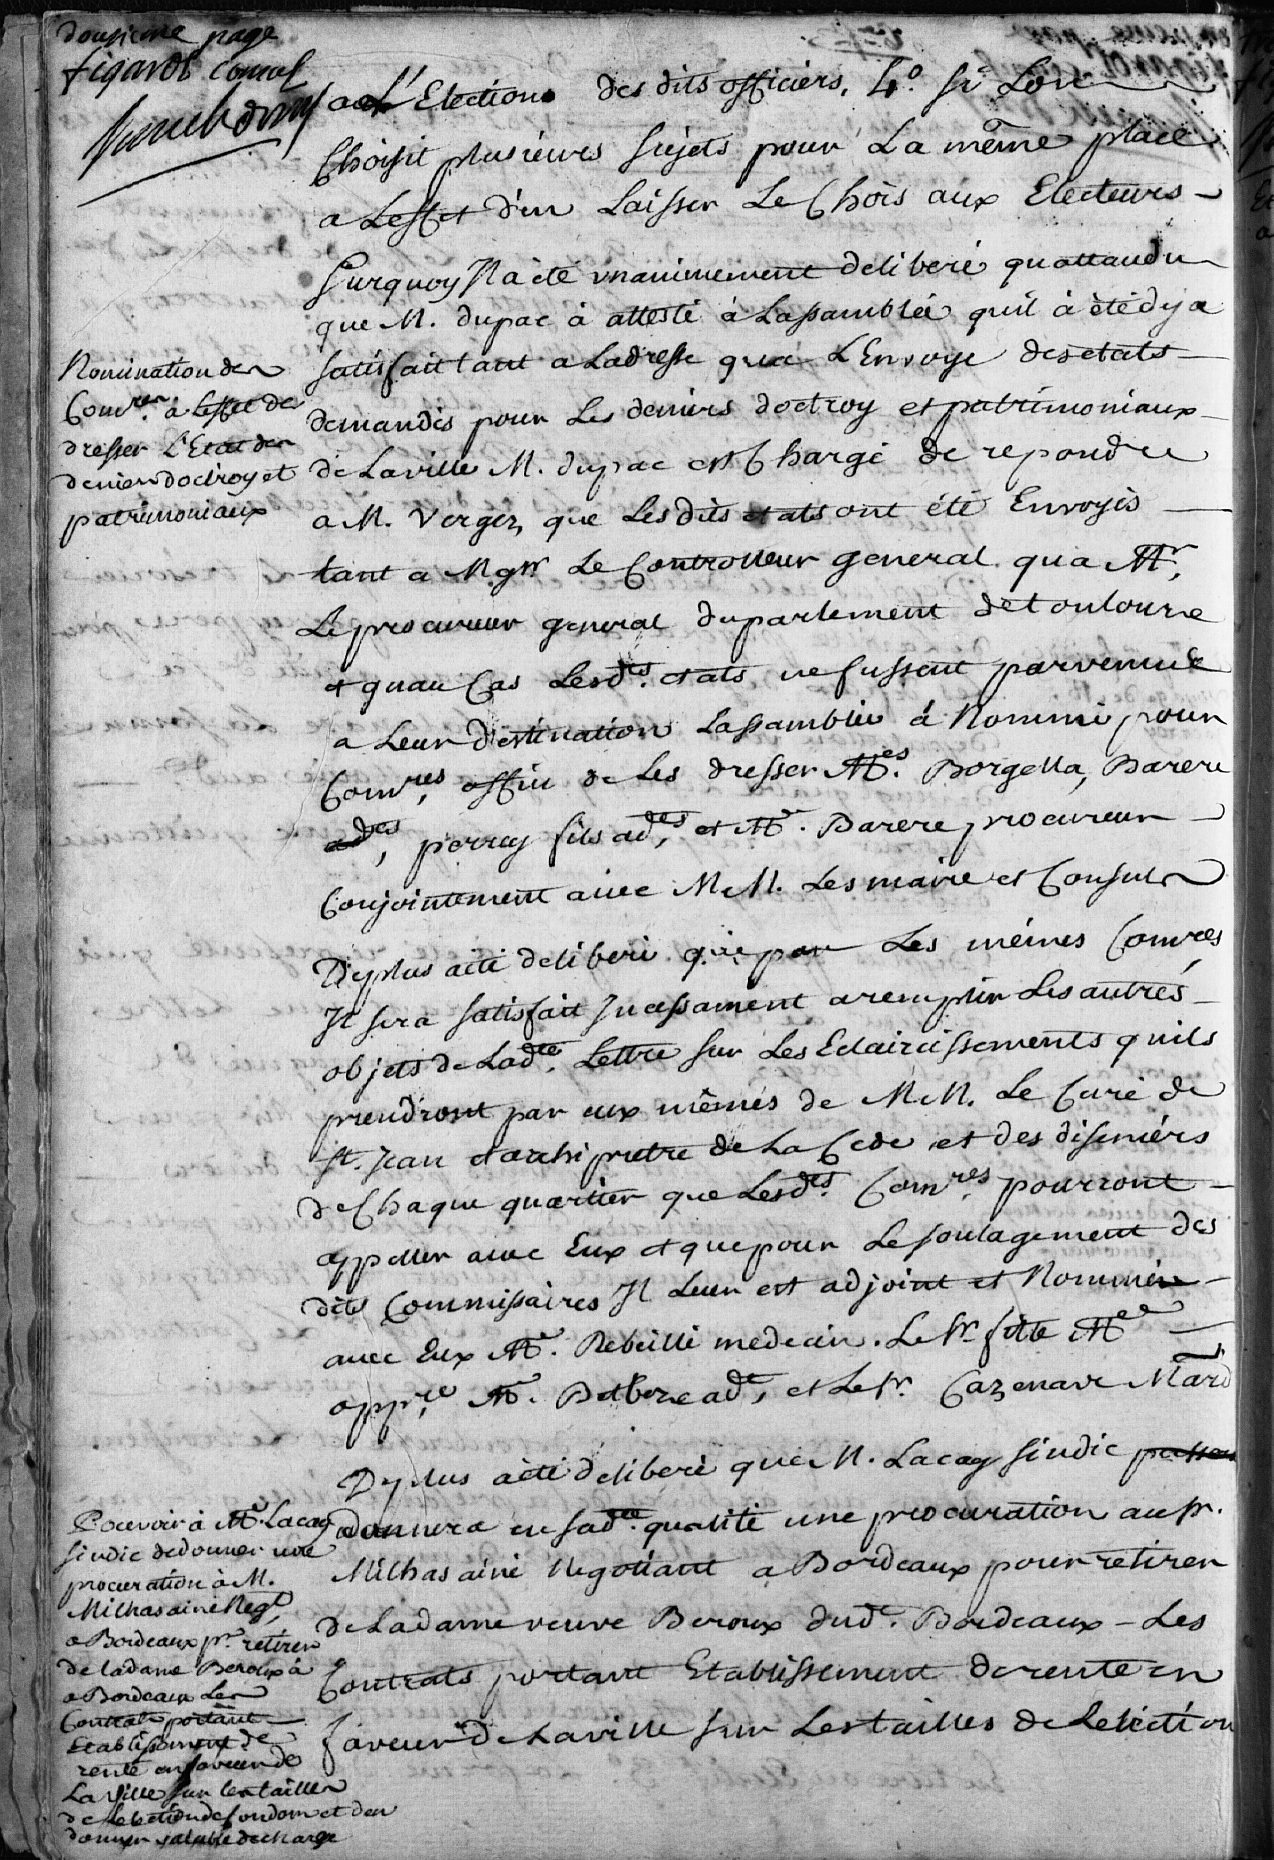 douzieme page
figarol Consul
a L'Election des dits officiers, 4.° si Lon
Choisit plusieurs sujets pour La même place
a Leffet d'en Laisser Le Chois aux Electeurs
Surquoy Il a èté unanimement deliberé quattandu
que M. dupac à attesté à Lassamblée quil à èté dèja
satisfait tant a Ladresse qua L'Envoye des etats
demandés pour Les deniers doctroy et patrimoniaux
de Laville M. dupac est Chargé de repondre
a M. Verges, que Lesdits etats ont été Envoyés
tant a Mgnr Le Controlleur general qua Mr.
Le procureur general duparlement detoulouse
et quau Cas Lesd.es etats ne fussent parvenus
a Leur destination Lassamblée à Nommé pour
Com.res affin de Les dresser Mes. Borgella, Barere
ad.es, perrey fils ad.es, et Me. Barere procureur
Conjointement avec MM. Lesmaire et Consuls
Deplus aété deliberé que par Les mêmes Com.res
Il sera satisfait Incessament aremplir Les autrés
objets de Lad.te Lettre sur Les Eclaircissements quils
prendront par eux mêmés de MM. Le Curé de
St. Jean etarchipretre de La Cede et des diseniérs
de Chaque quartier que Lesd.es Com.res pourront
appeller avec Eux et que pour Le soulagement des
dits Commissaires Il Leur est adjoint et Nommés
avec Eux Me. Rebeille medecin. Le Sr. fitte Me
app.re Me. Dethere ad.e, et Le Sr. Cazenave Mard
Deplus aèté deliberé que M. Lacay sindic
donnera en sad.te qualité une procuration au Sr.
Milhas ainé Negotiant a Bordeaux pour retirer
de Ladame veuve Beroux dud.t Bordeaux – Les
Contrats portant Etablissement de rente en
faveur de Laville sur Lestailles de Lelection
Nomination des
Com.res à Leffet de
dresser L'Etat des
deniers doctroy et
patrimoniaux
Pouvoir à Me Lacay
sindic dedonner une
procuration à M.
Milhas ainé Negt,
a Bordeaux pr. retirer
de ladame Beroux à
a Bordeaux Les
Contrats portant
Etablissement de
rente en faveur de
La Ville sur les tailles
de Lelection de et den
donner valable decharge